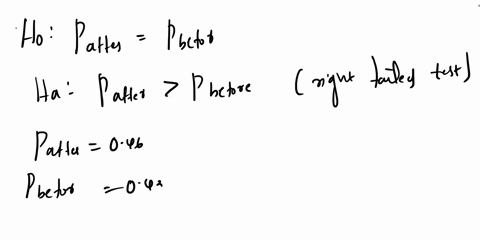 Ho: Pafter = Pbefor
Ha: Pafter > Pbefore (right tailed test)
Pafter = 0.46
Pbefor = 0.42